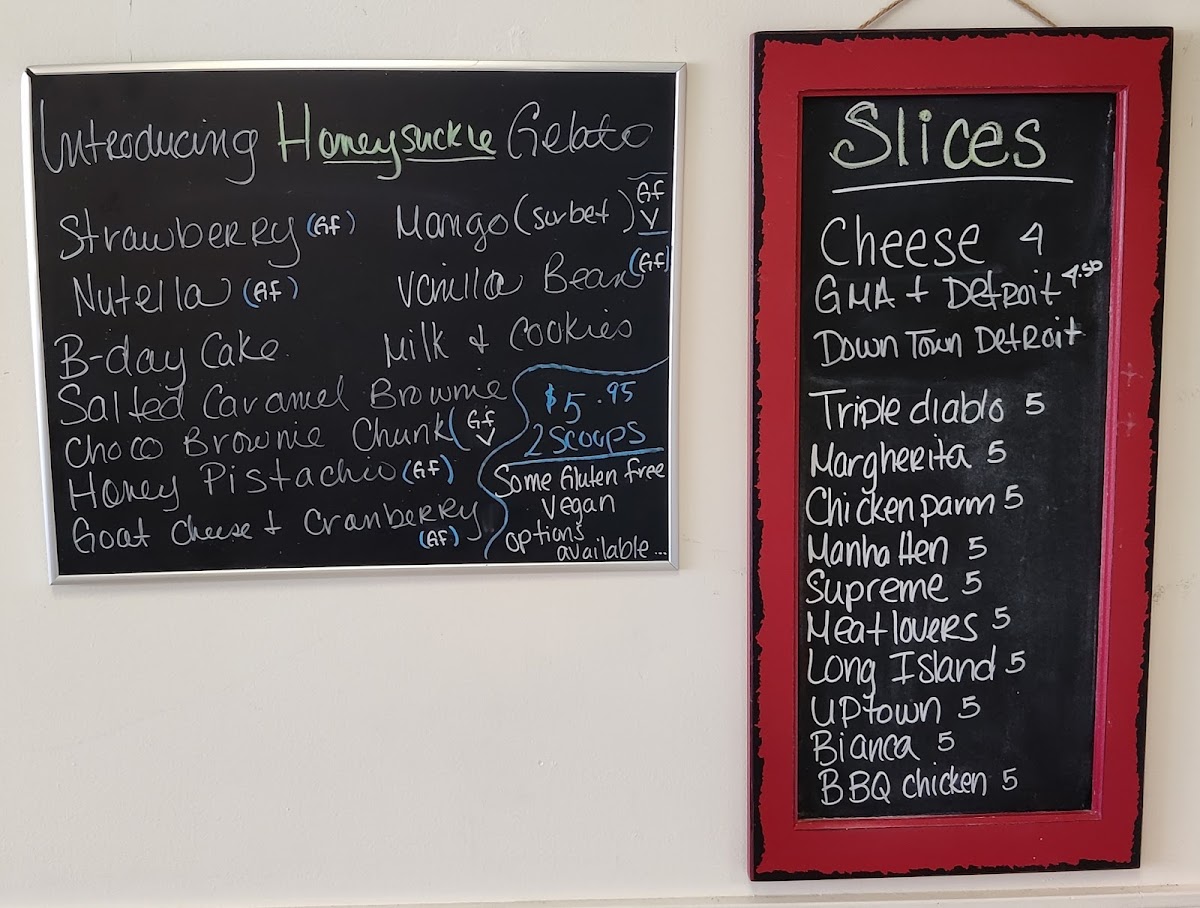 Introducing Honeysuckle Gelato
Strawberry (GF)
Nutella (GF)
B-day Cake
Salted Caramel Brownie
Choco Brownie Chunk (GF V
Honey Pistachio (GF)
Goat Cheese + Cranberry
(GF)
Mango (sorbet) GF
V
Vanilla Bean (GF)
Milk + Cookies
$5.95
2 scoops
Some Gluten free
Vegan
options
available...
Slices
Cheese 4
GMA + Detroit 4.50
Down Town Detroit
Triple diablo 5
Margherita 5
Chicken parm 5
Manhatten 5
Supreme 5
Meatlovers 5
Long Island 5
Uptown 5
Bianca 5
BBQ chicken 5